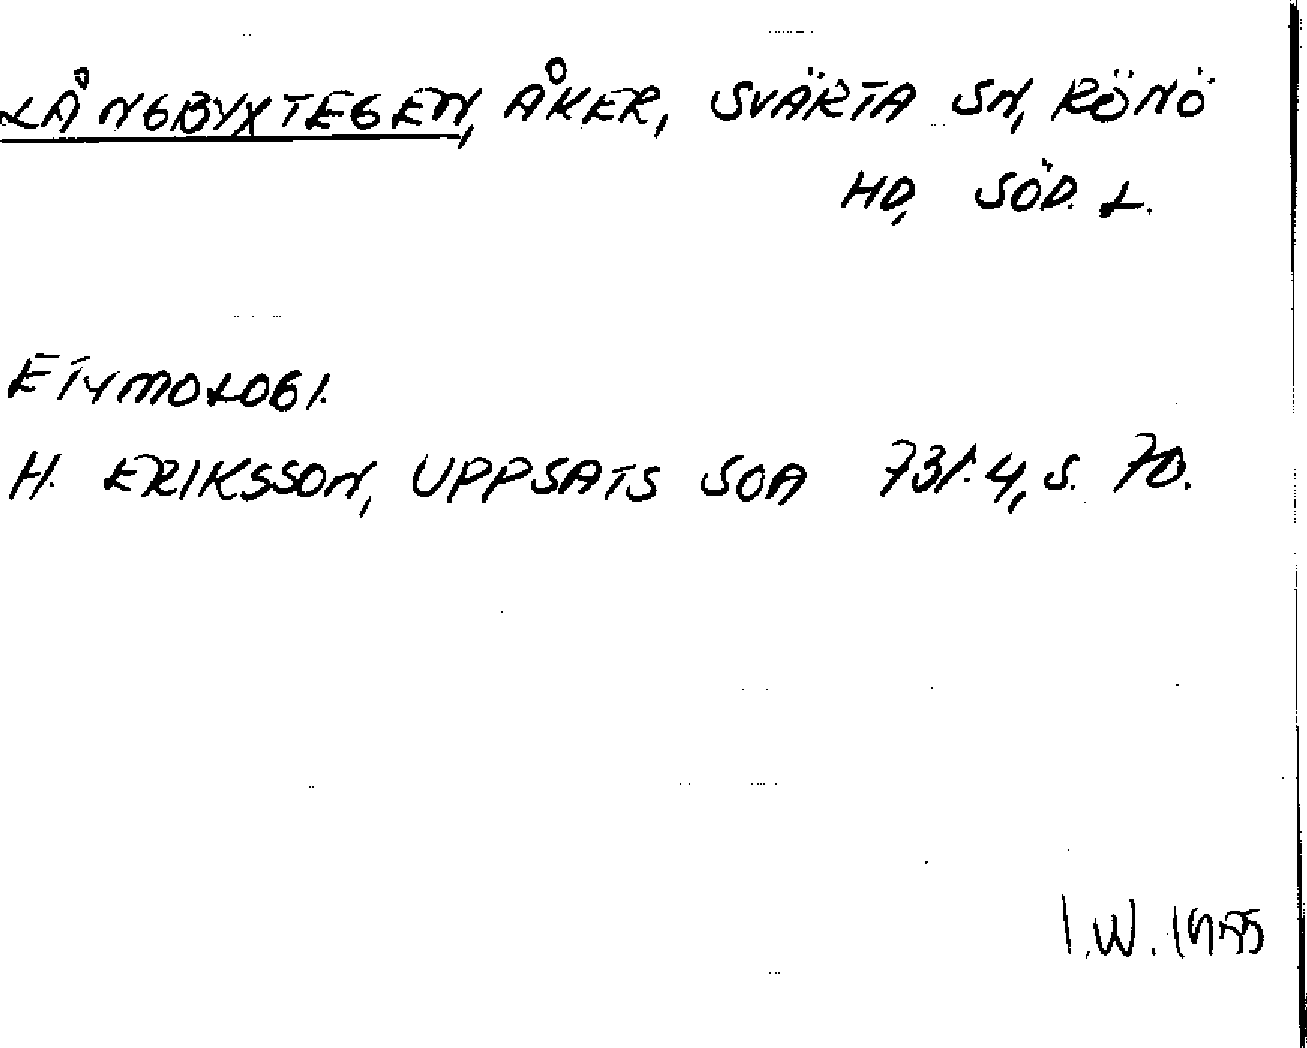 LÅNGBYXTEGEN, ÅKER, SVÄRTA SN, RÖNÖ
HD, SÖD. L.
ETYMOLOGI.
H. ERIKSSON, UPPSATS SOA 731:4, S. 70.
I.W.